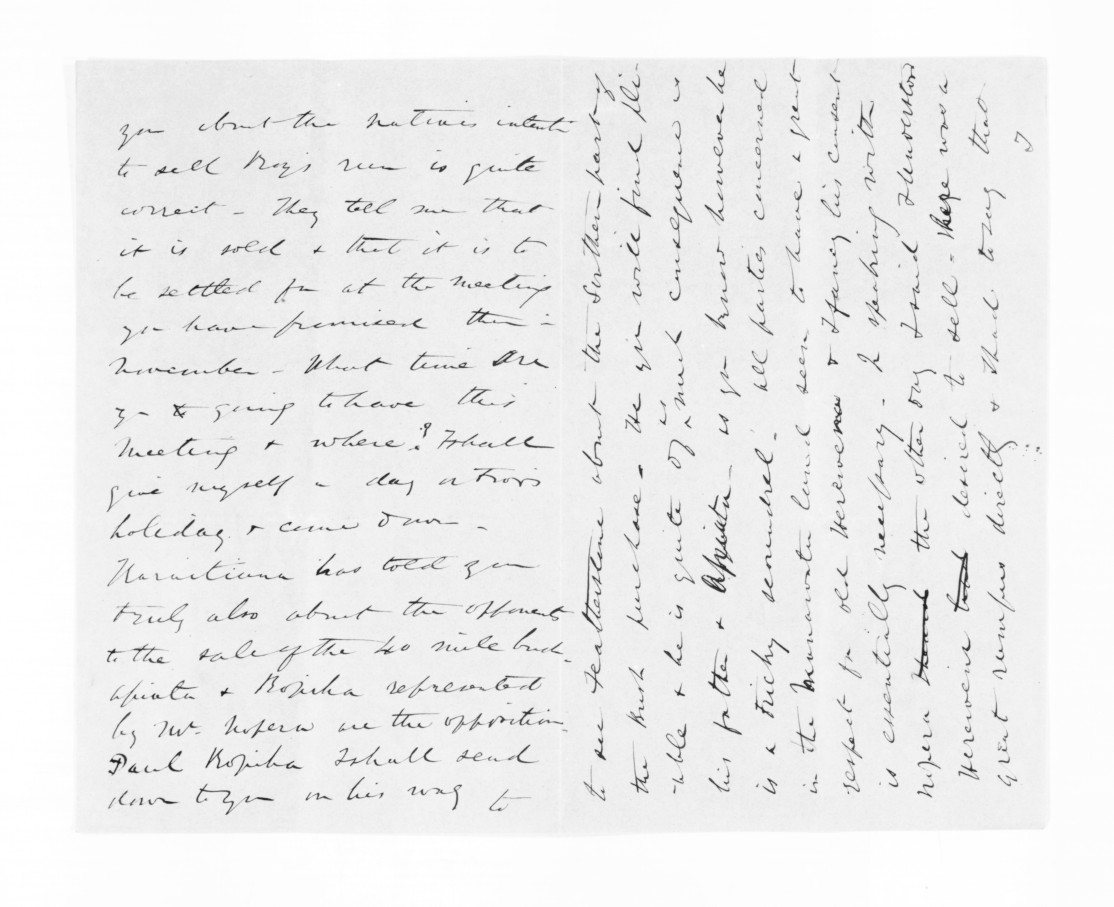 you about the natives intent
to sell Roy's run is quite
correct - They tell me that
it is sold & that it is to
be settled for at the meeting
you have promised them in
November - What time are
you going to have this
meeting & where? I shall
give myself a day or two's
holiday & come down -
Karaitiana has told you
truly also about the opponents
to the sale of the 40 mile bush.
Apiata & Ropiha represented
by Mr. Nopera are the opposition
Paul Ropiha I shall send
down to you on his way to
to see Featherstone about the Southern part of
the Bush purchase - He you will find pli-
-able & he is quite of & is much consequence is
his father & Apiata is you know however he
is a tricky scoundrel - all parties concerned
in the Manawatu land seem to have a great
respect for old Hereweni & I fancy his consent
is essentially necessary - In speaking with
Nopera the other day I said I understood
Hereweni desired to sell - there was a
great rumpus directly & I had to say that
I